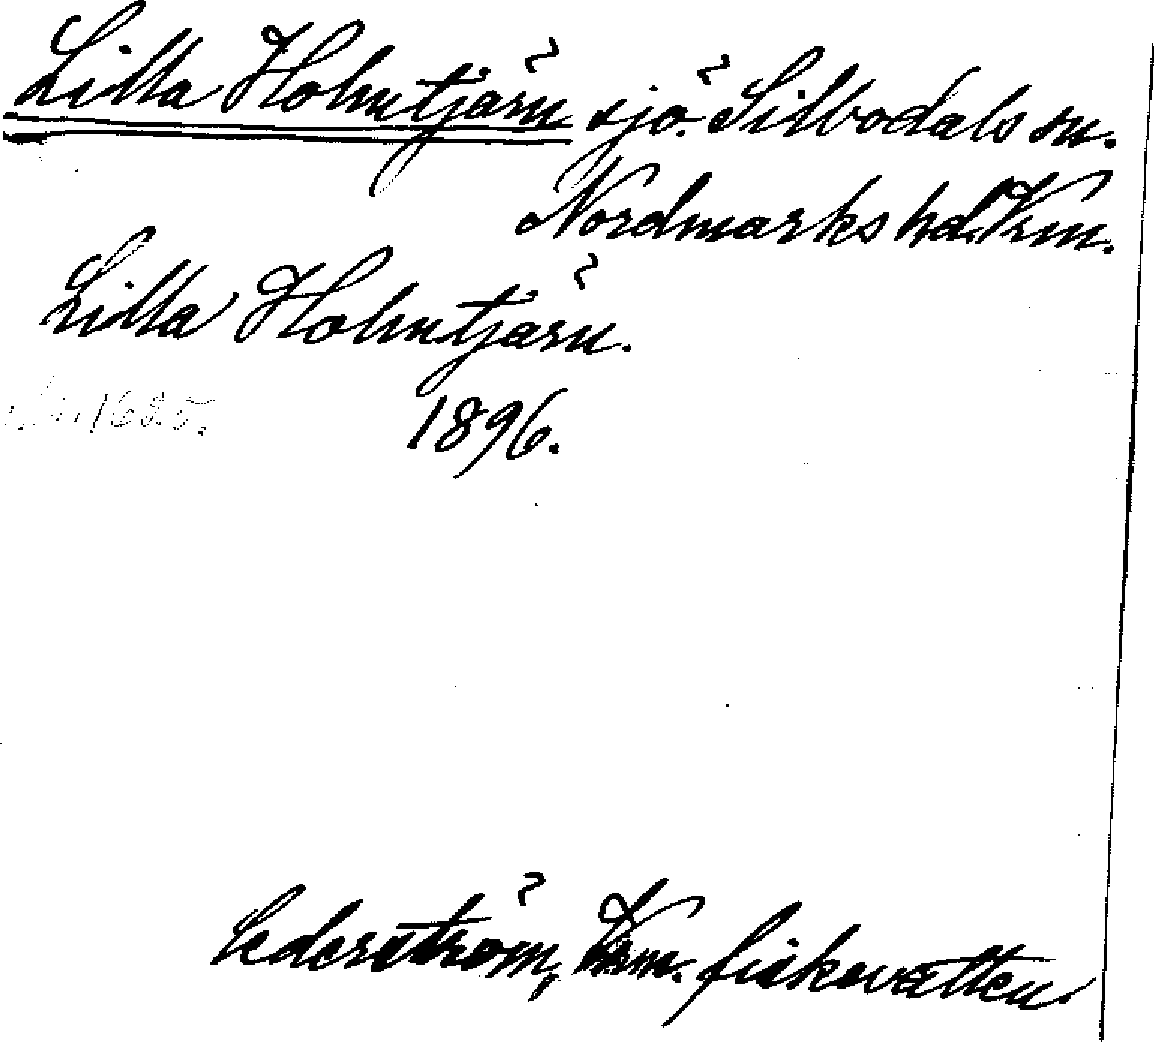 Lilla Holmtjärn sjö. Silbodals sn.
Nordmarks hd. Vrm.
Lilla Holmtjärn.
1685.
1896.
Cederström, Vrm. fiskevatten